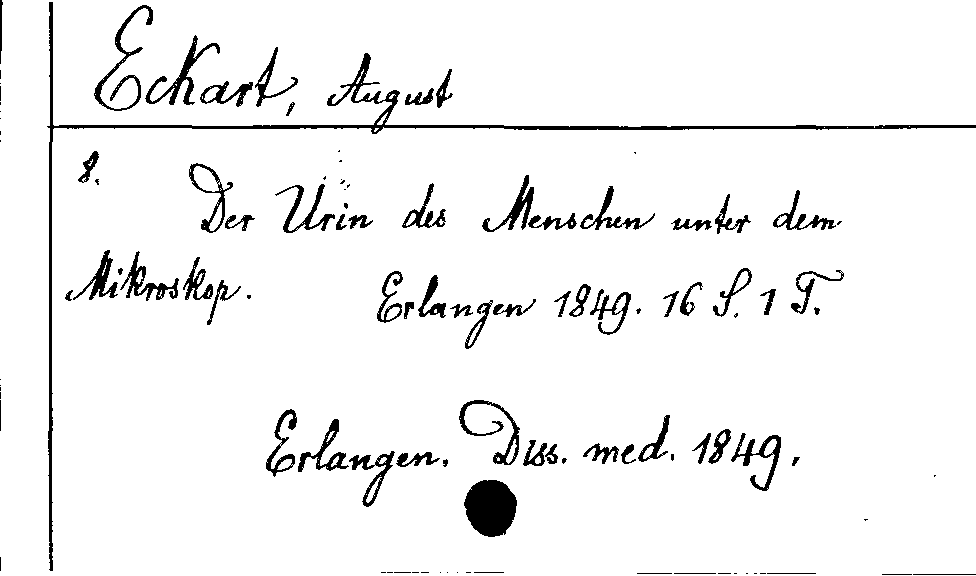 Eckart, August
8.
Der Urin des Menschen unter dem
Mikroskop. Erlangen 1849. 16 S. 1 T.
Erlangen. Diss. med. 1849.